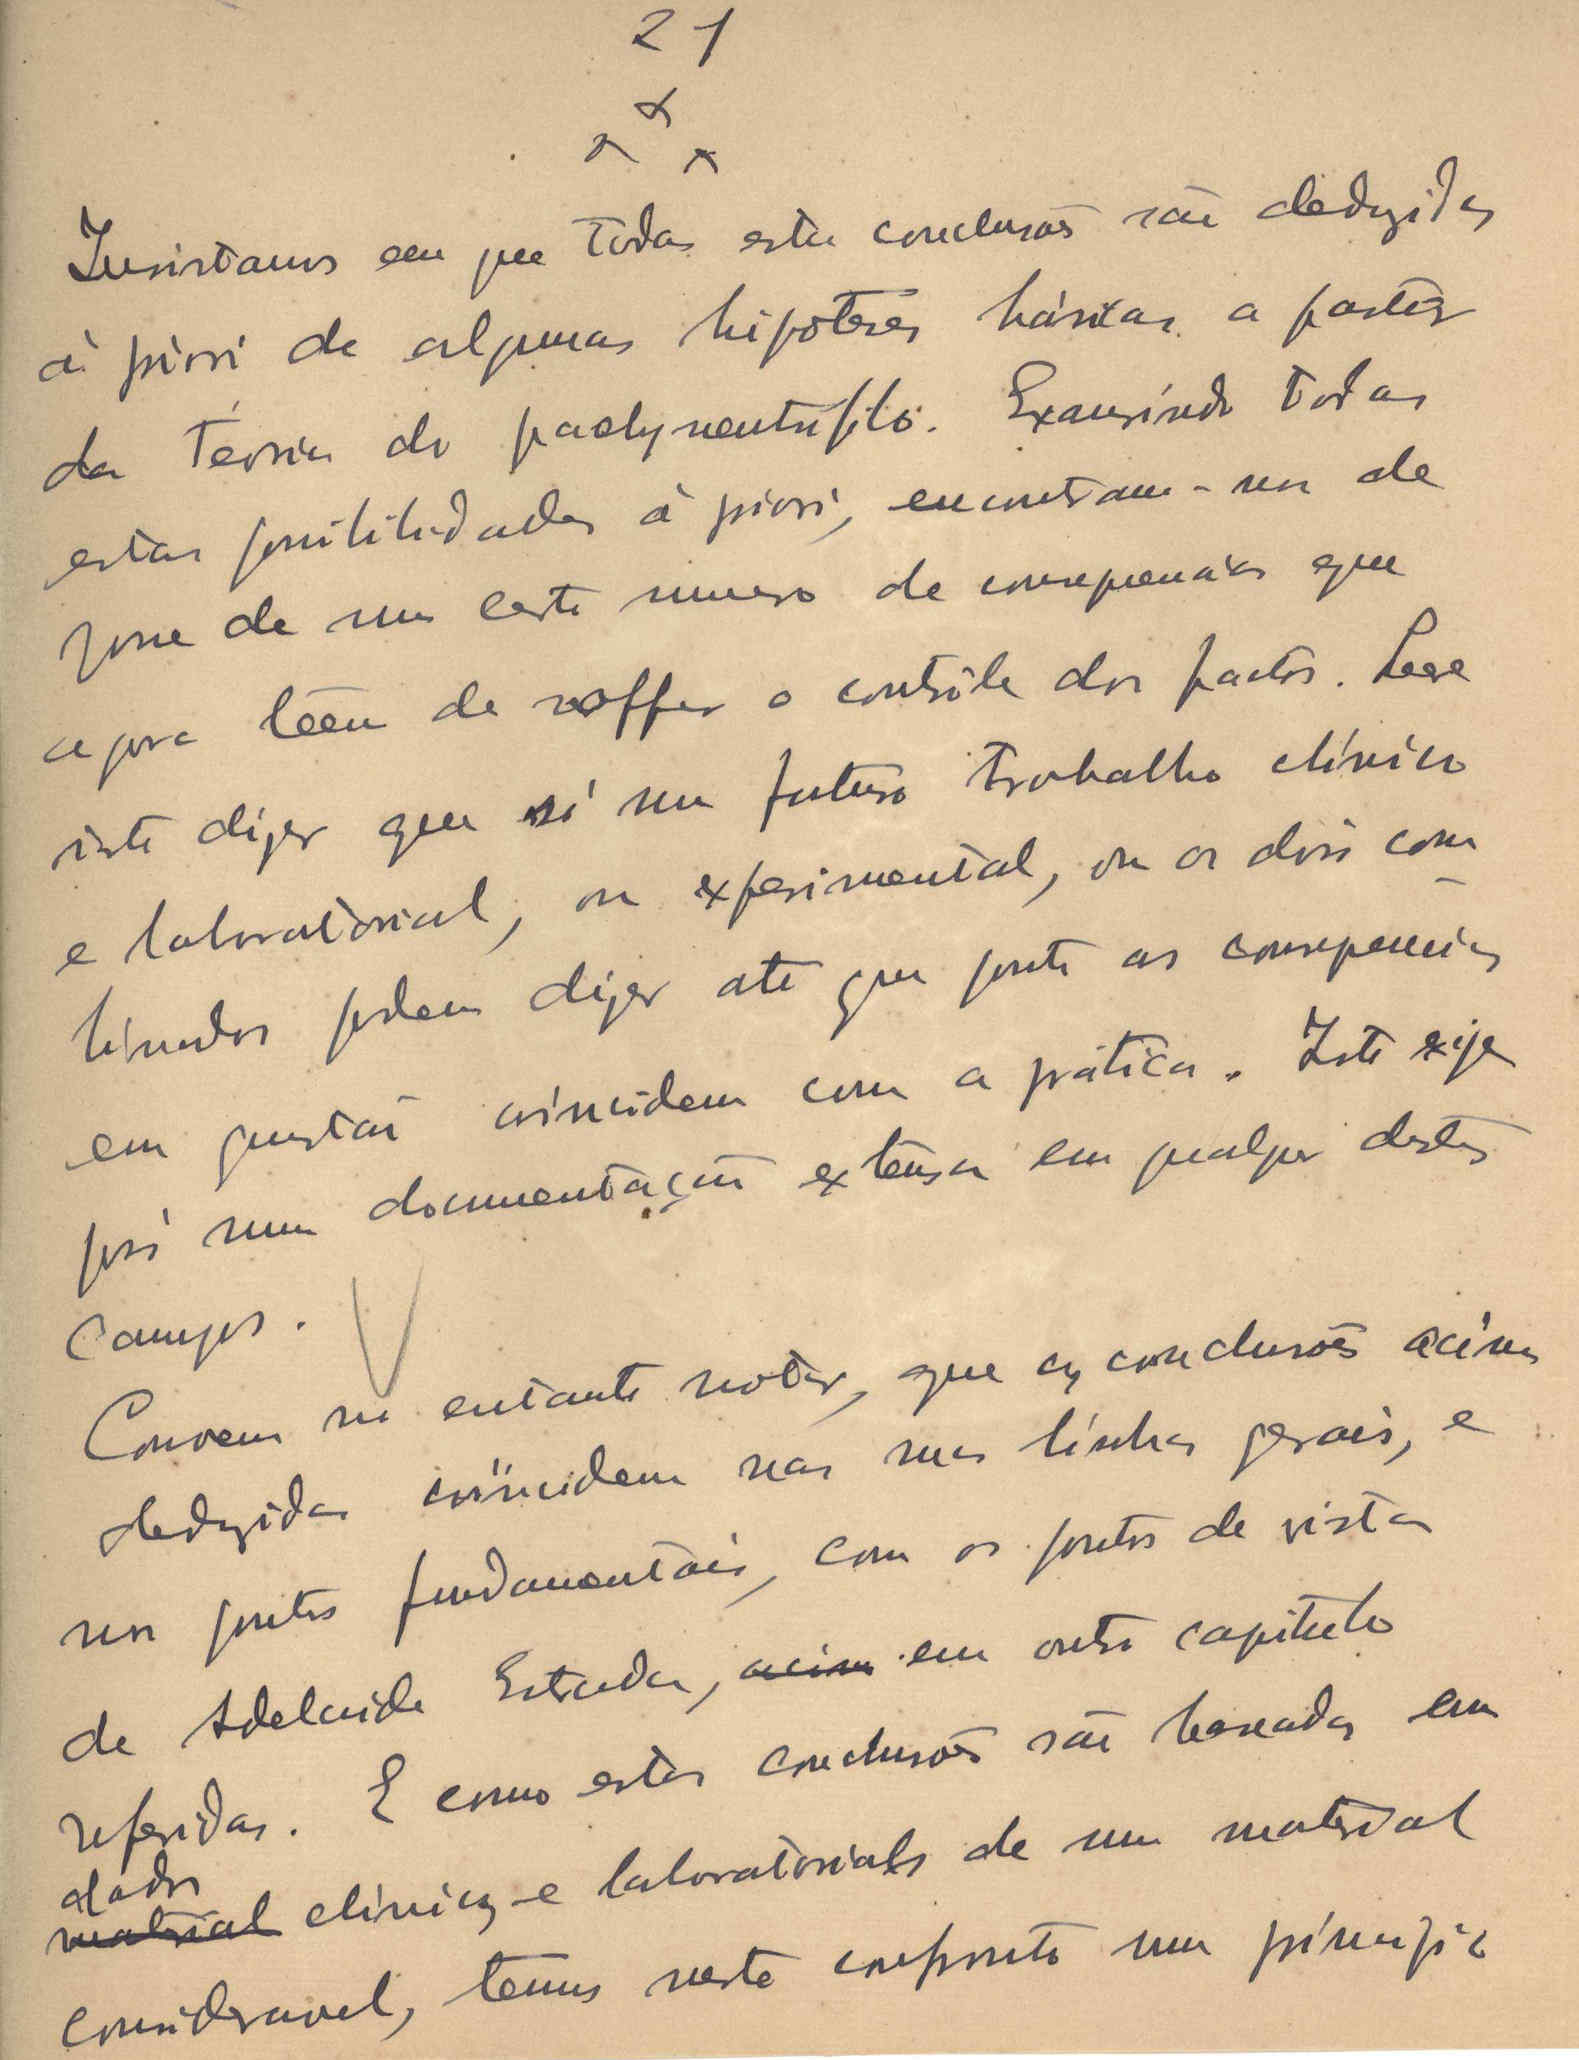 21
x x x
Insistamos em que todas estas conclusões são deduzidas
à priori de algumas hipoteses básicas a partir
da teoria do
estas possibilidades à priori, encontram-nos de
de um certo numero de consequencias que
agora têem de soffrer o contrôle dos factos. Quere
isto dizer que só um futuro trabalho clínico
e laboratorial, ou experimental, ou os dois com-
binados podem dizer até que ponto as consequencias
em questão coincidem com a prática. Isto exije
pois uma documentação extensa em qualquer destes
campos.
Convem no entanto notar, que as conclusões acima
deduzidas coïncidem nas suas linhas gerais, e
nos pontos fundamentais, com os pontos de vista
de Adelaide Estrada, acima em outro capitulo
referidas. E como estas conclusões são baseadas em
dados
material clínicos e laboratoriais de um material
consideravel, temos neste confronto um princípio